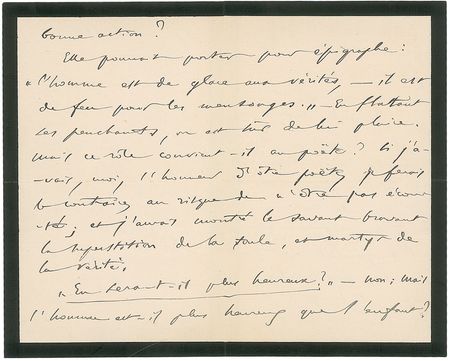 bonne action ?
Elle pourrait porter pour épigraphe :
"L'homme est de glace aux vérités, — il est
de feu pour les mensonges." — En flattant
ses penchants, on est sûr de lui plaire.
Mais ce rôle convient-il au poëte ? Si j'a-
vais, moi, l'honneur d'être poëte, je ferais
le contraire, au risque de n'être pas écou-
té ; et j'aurais montré le savant bravant
la superstition de la foule, et martyr de
la vérité.
"En sera-t-il plus heureux ?" — Non ; mais
l'homme est-il plus heureux que l'enfant ?